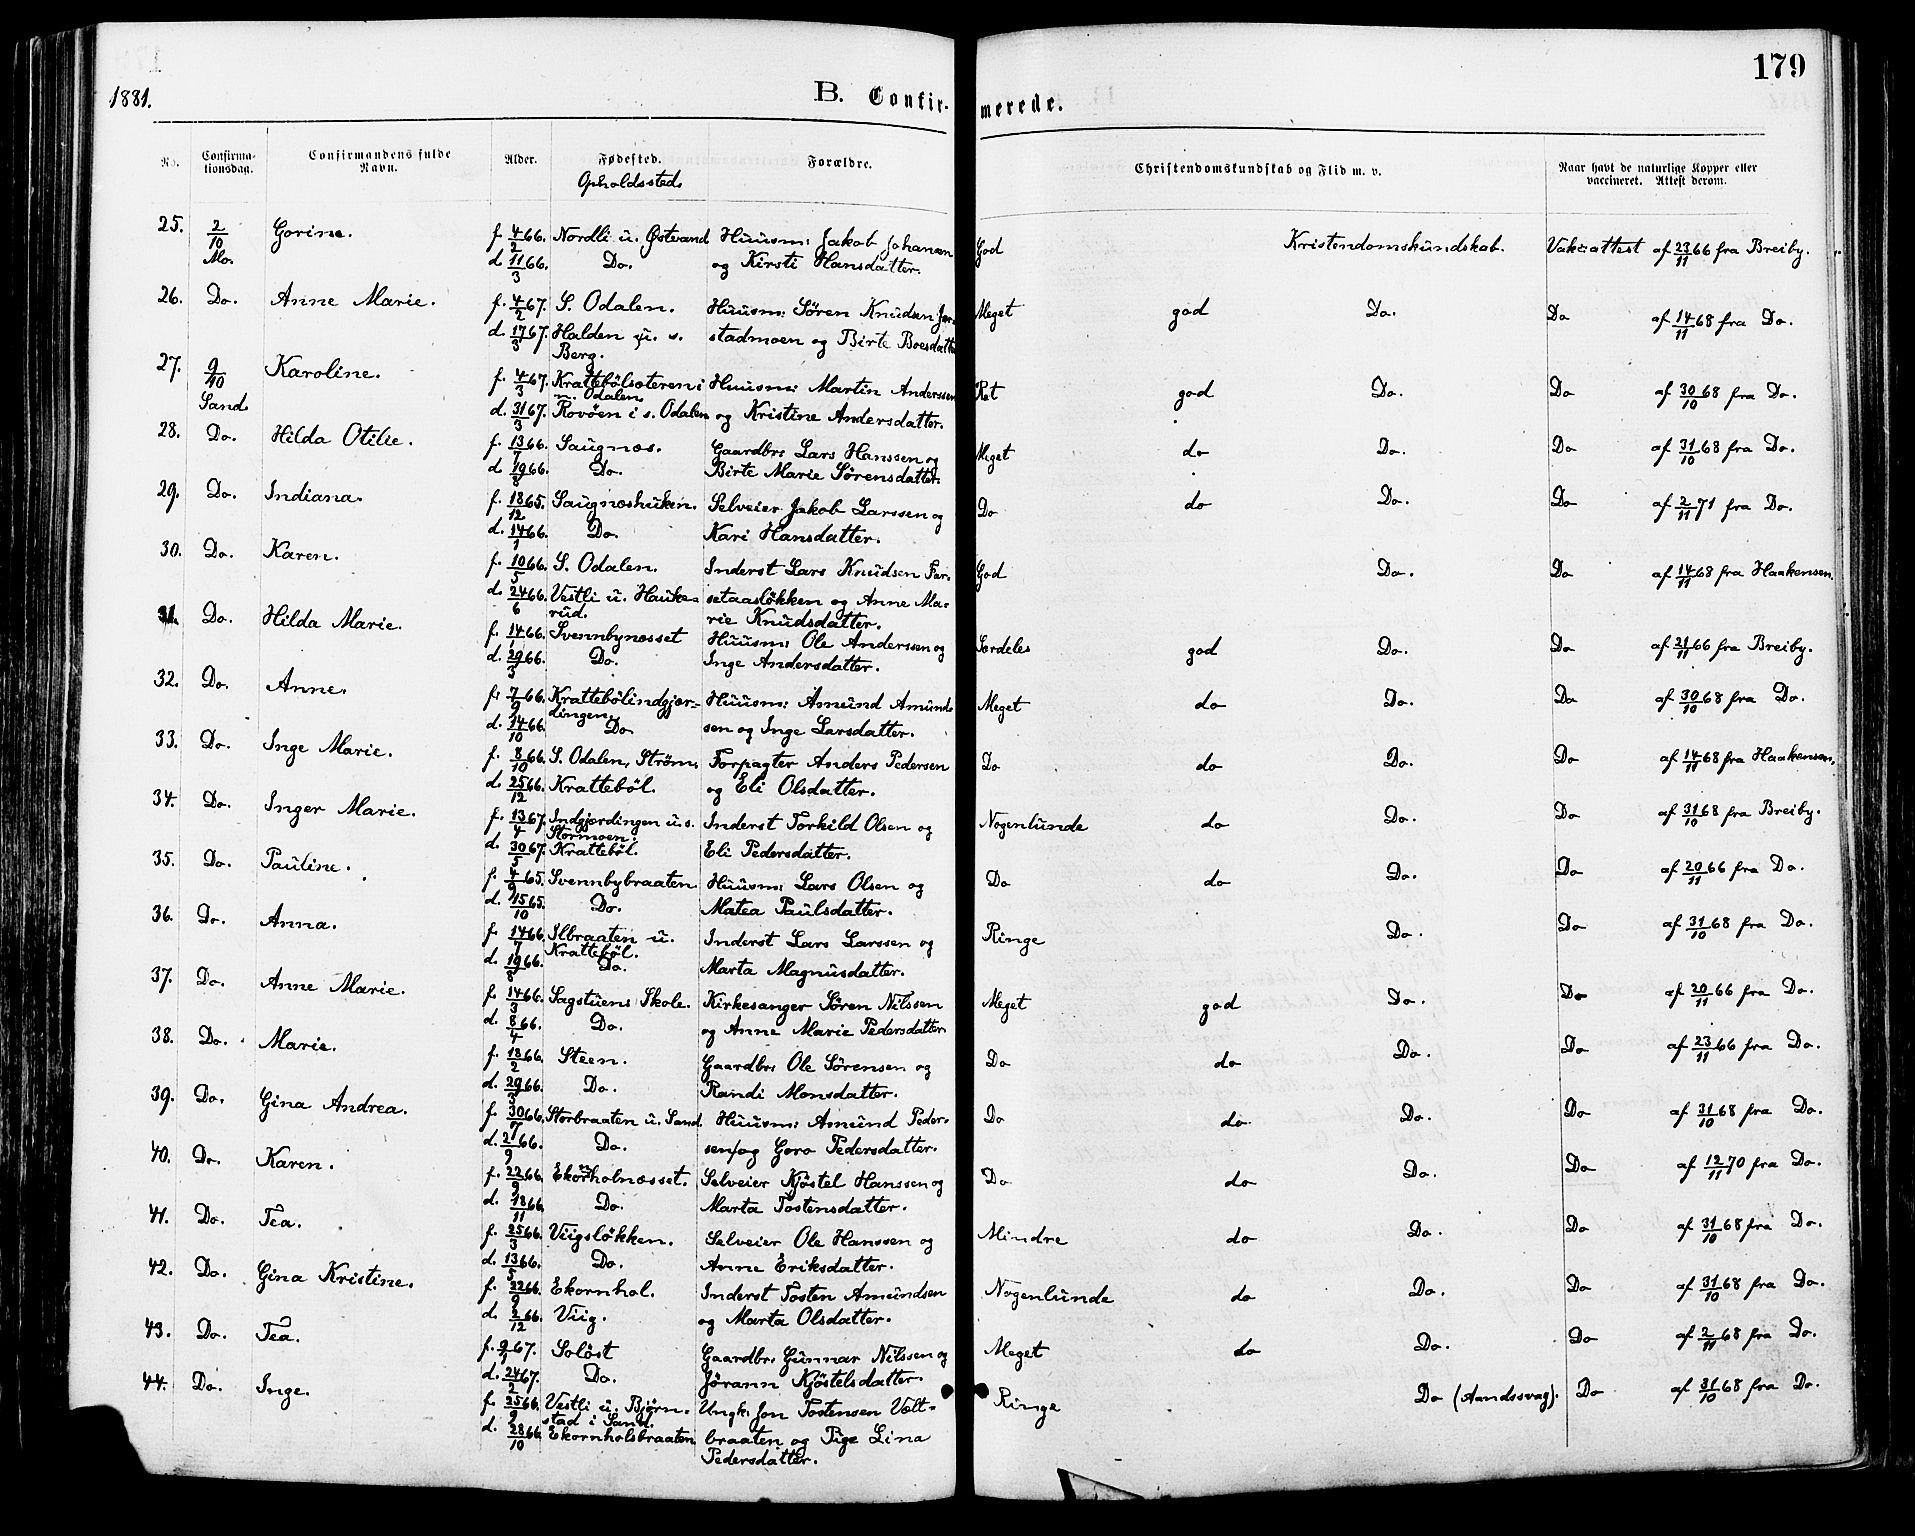 179
1881.
B. Confir-
merede.
No.
Confirma-
tionsdag.
Confirmandens fulde
Navn.
Alder.
Fødested.
Opholdssted.
Forældre.
Christendomskundskab og Flid m. v.
Naar havt de naturlige Kopper eller
vaccineret. Attest derom.
25. 2/10 Gorine. f. 4/2 66. Nordli u. Østvand Huusm: Jakob Johansen God Kristendomskundskab. Vakc:attest af 23/11 66 fra Breiby.
Mo. d. 11/3 66. Do. og Kirsti Hansdatter.
26. Do. Anne Marie. f. 4/2 67. S. Odalen. Huusm: Søren Knudsen Meget god Do. Do af 14/11 68 fra Do.
d. 17/3 67. Halden u. s. stadmoen og Birte Boesdatter
Berg.
27. 9/10 Karoline. f. 4/3 67. Krattebølsæteren i Huusm: Martin Anderssen Ret god Do. Do af 30/10 68 fra Do.
n. Odalen.
Sand. d. 31/3 67. Rovöen i s. Odalen og Kristine Andersdatter.
28. Do. Hilda Otilie. f. 13/7 66. Saugnæs. Gaardbr: Lars Hanssen og Meget do Do. Do af 31/10 68 fra Do.
d. 19/8 66. Do. Birte Marie Sørensdatter.
29. Do. Indiana. f. 18/12 65. Saugnæshuken. Selveier Jakob Larssen og Do do Do. Do af 2/11 71 fra Do.
d. 14/1 66. Do. Kari Hansdatter.
30. Do. Karen. f. 10/5 66. S. Odalen. Inderst Lars Knudsen Far- God Do. Do af 14/11 68 fra Haakensen.
d. 24/6 66. Vestli u. Hauke- setaasløkken og Anne Ma-
rud. rie Knudsdatter.
31. Do. Hilda Marie. f. 14/1 66. Svennbynæsset Huusm: Ole Anderssen og Særdeles god Do. Do af 21/11 66 fra Breiby.
d. 29/3 66. Do. Inge Andersdatter.
32. Do. Anne. f. 7/9 66. Krattebölindgjær- Huusm: Amund Amund- Meget do Do. Do af 30/10 68 fra Do.
dingen.
d. 14/10 66. Do sen og Inge Larsdatter.
33. Do. Inge Marie. f. 8/10 66. S. Odalen, Strøm. Forpagter Anders Pedersen Do do Do. Do af 14/11 68 fra Haakensen.
d. 25/12 66. Kratteböl. og Eli Olsdatter.
34. Do. Inger Marie. f. 13/4 67. Indgjærdingen u. s. Inderst Torkild Olsen og Nogenlunde do Do. Do af 31/10 68 fra Breiby.
Stormoen.
d. 30/5 67. Kratteböl. Eli Pedersdatter.
35. Do. Pauline. f. 4/9 65. Svennbybraaten Huusm: Lars Olsen og Do do Do. Do af 20/11 66 fra Do.
d. 15/10 65. Do. Matea Paulsdatter.
36. Do. Anna. f. 14/7 66. Ilbraaten u. Inderst Lars Larssen og Ringe Do. Do af 31/10 68 fra Do.
Kratteböl.
d. 19/8 66. Do. Marta Magnusdatter.
37. Do. Anne Marie. f. 14/3 66. Sagstuens Skole. Kirkesanger Sören Nilssen Meget god Do. Do af 20/11 66 fra Do.
d. 8/4 66. Do. og Anne Marie Pedersdatter.
38. Do. Marie. f. 18/2 66. Steen. Gaardbr: Ole Sörensen og Do do Do. Do af 23/11 66 fra Do.
d. 29/3 66. Do. Randi Monsdatter.
39. Do. Gina Andrea. f. 30/7 66. Storbraaten u. Sand. Huusm: Amund Peder- Do do. Do. Do af 31/10 68 fra Do.
d. 2/9 66. Do. sen og Goro Pedersdatter.
40. Do. Karen. f. 22/9 66. Ekornholnæsset. Selveier Kjöstel Hanssen og Do do Do. Do af 12/11 70 fra Do.
d. 18/11 66. Do. Marta Tostensdatter.
41. Do. Tea. f. 25/3 66. Viigslökken. Selveier Ole Hanssen og Mindre do Do. Do af 31/10 68 fra Do.
d. 13/5 66. Do. Anne Eriksdatter.
42. Do. Gina Kristine. f. 22/9 66. Ekornhol. Inderst Tosten Amundsen Nogenlunde do Do. Do af 31/10 68 fra Do.
d. 2/12 66. Viig. og Marta Olsdatter.
43. Do. Tea. f. 9/1 67. Solöst Gaardbr: Gunnar Nilssen og Meget do Do. Do af 2/11 68 fra Do.
d. 24/2 67. Do. Jörann Kjöstelsdatter.
44. Do. Inge. f. 25/9 66. Vestli u. Björn- Ungk: Jon Tostensen Vælt- Ringe Do (Aandssvag). Do af 31/10 68 fra Do.
stad i Sand.
d. 28/10 66. Ekornholsbraaten braaten og Pige Lina
Pedersdatter.